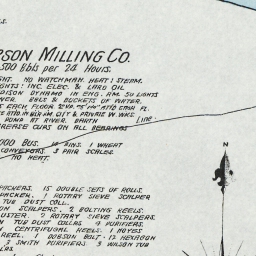 S.
RSON MILLING CO.
500 Bbls per 24 Hours.
GHT. NO WATCHMAN. HEAT: STEAM.
GHTS: INC. ELEC. & LARD OIL
DISON DYNAMO IN ENG. RM. 50 LIGHTS
BBLS & BUCKETS OF WATER.
EACH FLOOR
CITY & PRIVATE W. WKS.
PUMP AT RIVER. EARTH
GREASE CUPS ON ALL BEARINGS
Line.
000 BUS. BINS. 1 WHEAT
CONVEYORS. 3 PAIR SCALES
NO HEAT.
PACKERS. 15 DOUBLE SETS OF ROLLS.
PACKER. 1 ROTARY SIEVE SCALPER
TUB DUST COLL.
ON SCALPERS. 2 BOLTING REELS.
DUSTER. 2 ROTARY SIEVE SCALPERS.
TUB DUST COLLAS 4 PURIFIERS.
CENTRIFUGAL REELS. 1 NOYES
REEL. 1 DOBSON BOLT. 12 HEXAGON
3 SMITH PURIFIERS 3 WILSON TUB
LAS.